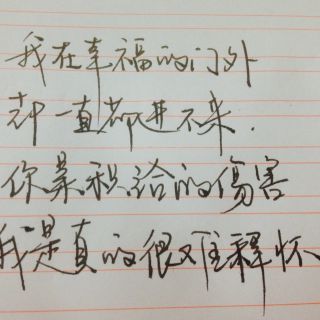 我在幸福的门外
却一直都进不来.
你累积给的傷害
我是真的很难释怀